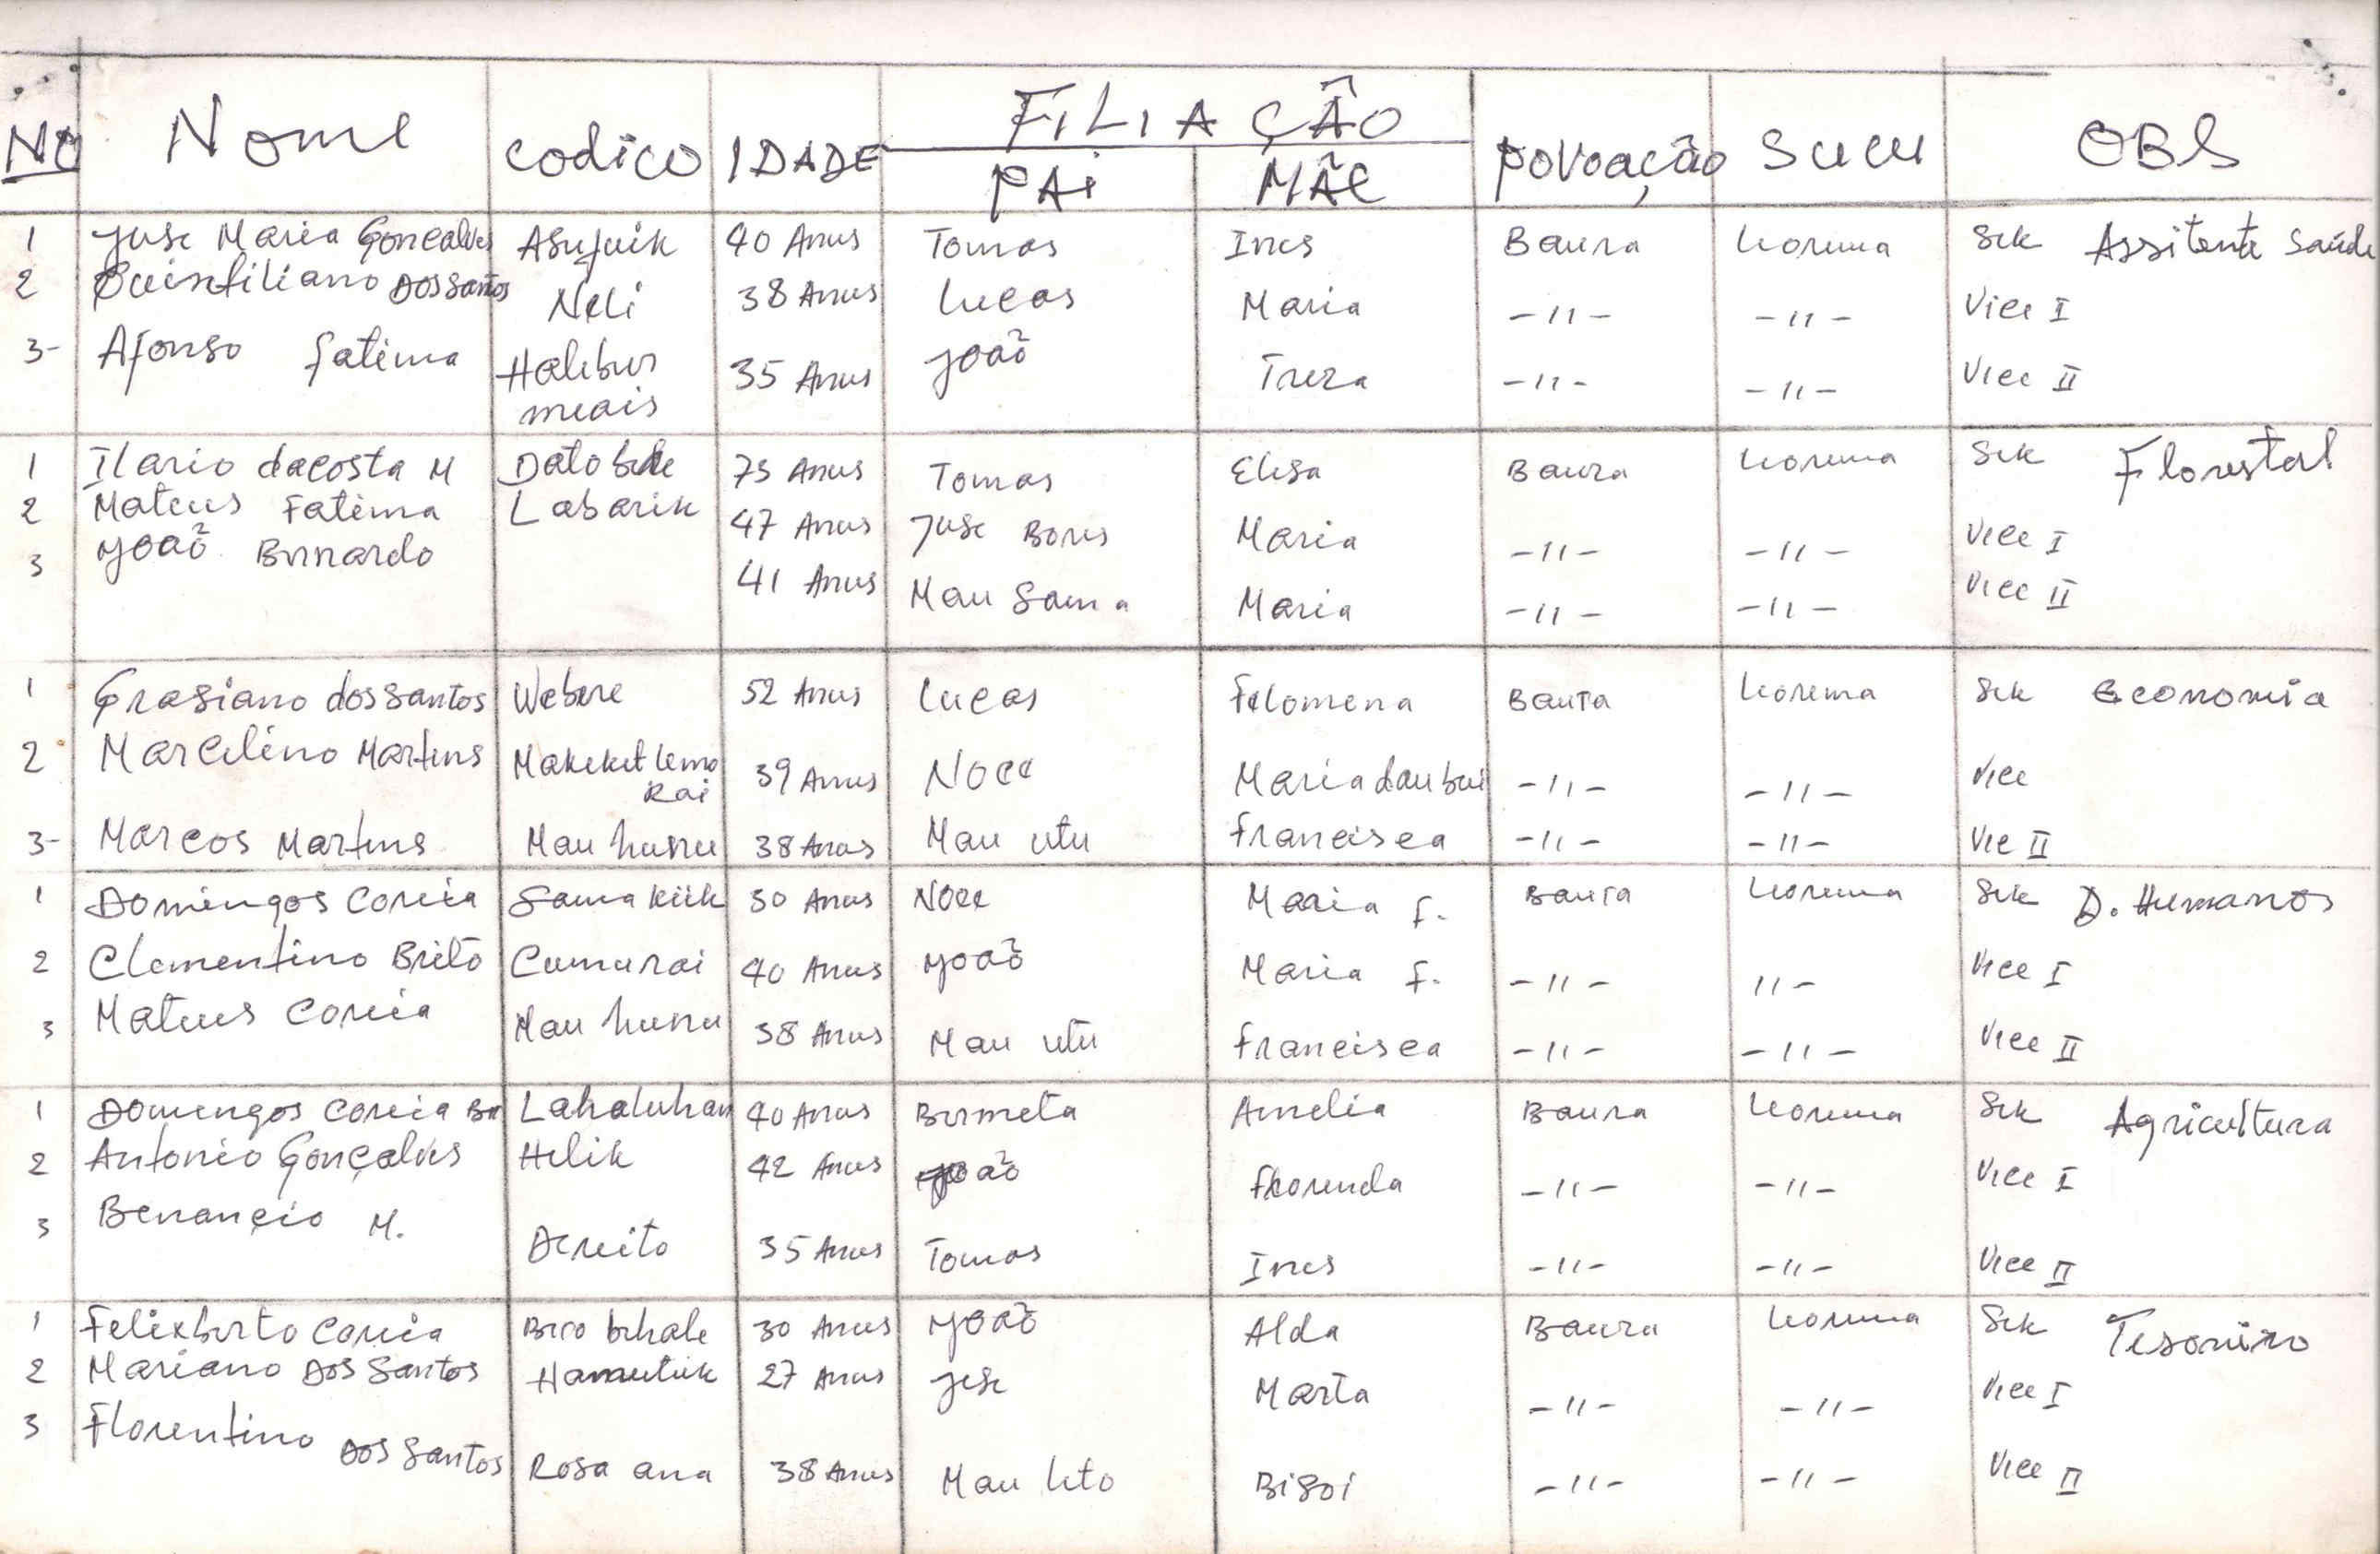 NO Nome codico IDADE FILIAÇÃO POVOAÇÃO SUCU OBS
PAI MÃE
1 Juse Maria Gonçalves Asujuik 40 Anus Tomas Ines Baura Leorema Sek Assitente Saúde
2 Quintiliano Dos Santos Neli 38 Anus Lucas Maria -11- -11- Vice I
3- Afonso Fatima Halibur 35 Anus João Treza -11- -11- Vice II
meais
1 Ilario dacosta M Dato bele 73 Anus Tomas Elisa Baura Leorema Sek Florestal
2 Mateus Fatima Labarik 47 Anus Juse Bores Maria -11- -11- Vice I
3 João Bernardo 41 Anus Mau Sama Maria -11- -11- Vice II
1 Grasiano dos Santos Webere 52 Anus Lucas Felomena Baura Leorema Sek Economia
2 Marcelino Martins Makeket lemo 39 Anus Noce Maria dau bui -11- -11- Vice
Rai
3- Marcos Martins Mau hunu 38 Anus Mau utu Francisca -11- -11- Vice II
1 Domingos Coreia Sama kiik 30 Anus Noce Maria F. Baura Leorema Sek D. Humanos
2 Clementino Brito Cumurai 40 Anus João Maria F. -11- 11- Vice I
3 Mateus Coreia Mau hunu 38 Anus Mau utu Francisca -11- -11- Vice II
1 Domengos Coreia Be Lahaluhan 40 Anus Bermeta Amelia Baura Leorema Sek Agricultura
2 Antonio Gonçalves Helik 42 Anus João Florenda -11- -11- Vice I
3 Benançio M. Dereito 35 Anus Tomas Ines -11- -11- Vice II
1 Felixberto Coreia Bero behale 30 Anus João Alda Baura Leorema Sek Tesoreiro
2 Mariano Dos Santos Hamutuk 27 Anus Jese Marta -11- -11- Vice I
3 Florentino Dos Santos Rosa ana 38 Anus Mau leto Bisoi -11- -11- Vice II